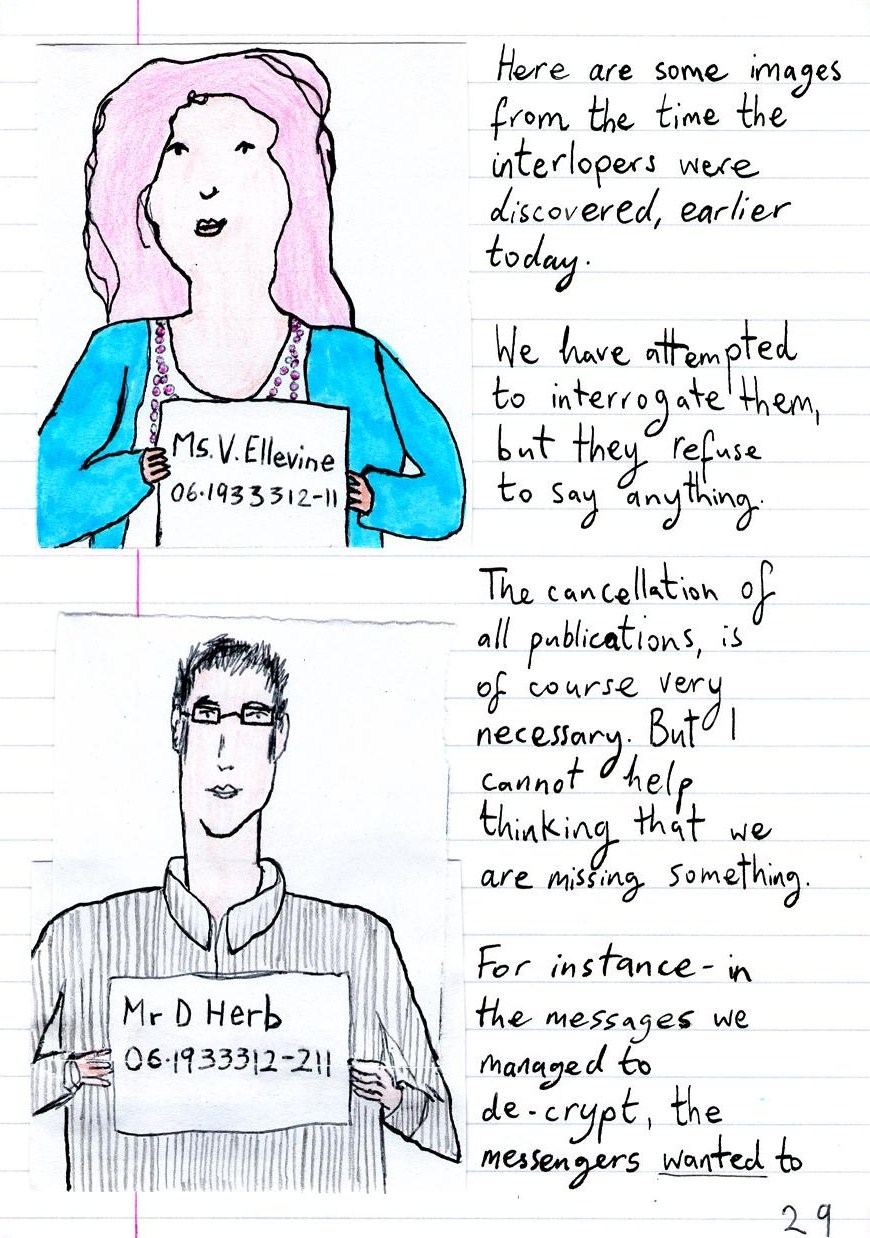 Here are some images
from the time the
interlopers were
discovered, earlier
today.
We have attempted
to interrogate them,
but they refuse
to say anything.
Ms. V. Ellevine
06.1933312-11
The cancellation of
all publications, is
of course very
necessary. But I
cannot help
thinking that we
are missing something.
For instance - in
the messages we
managed to
de-crypt, the
messengers wanted to
Mr D Herb
06.1933312-211
29